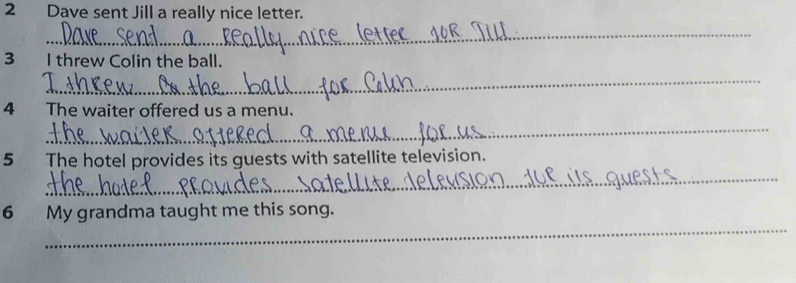 2 Dave sent Jill a really nice letter.
Dave sent a really nice letter for Jill.
3 I threw Colin the ball.
I threw the ball for Colin
4 The waiter offered us a menu.
the waiter offered a menu for us
5 The hotel provides its guests with satellite television.
the hotel provides satellite television for its guests
6 My grandma taught me this song.